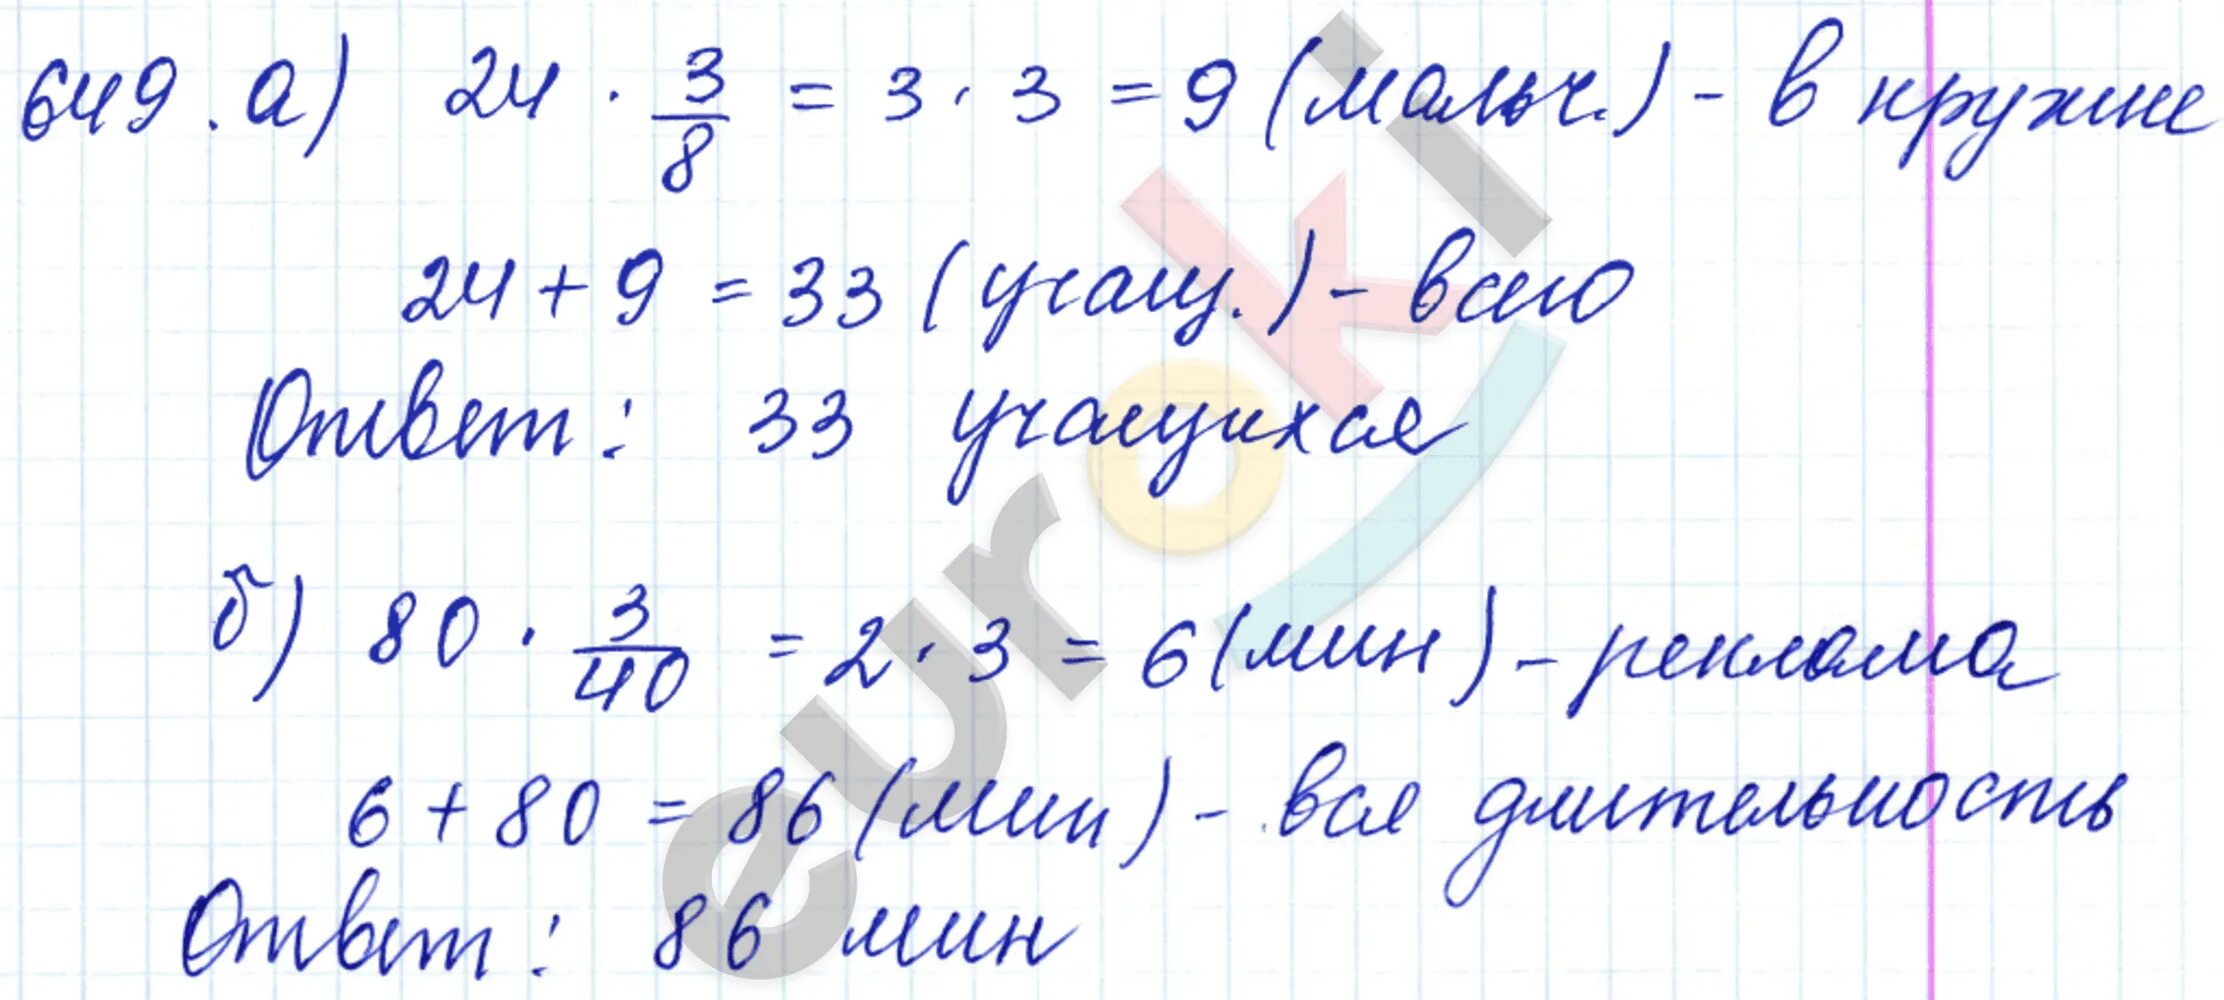 649. а) 24 · 3/8 = 3 · 3 = 9 (мальч.) - в кружке
24 + 9 = 33 (учащ.) - всего
Ответ: 33 учащихся
б) 80 · 3/40 = 2 · 3 = 6 (мин) - реклама
6 + 80 = 86 (мин) - вся длительность
Ответ: 86 мин
euroki